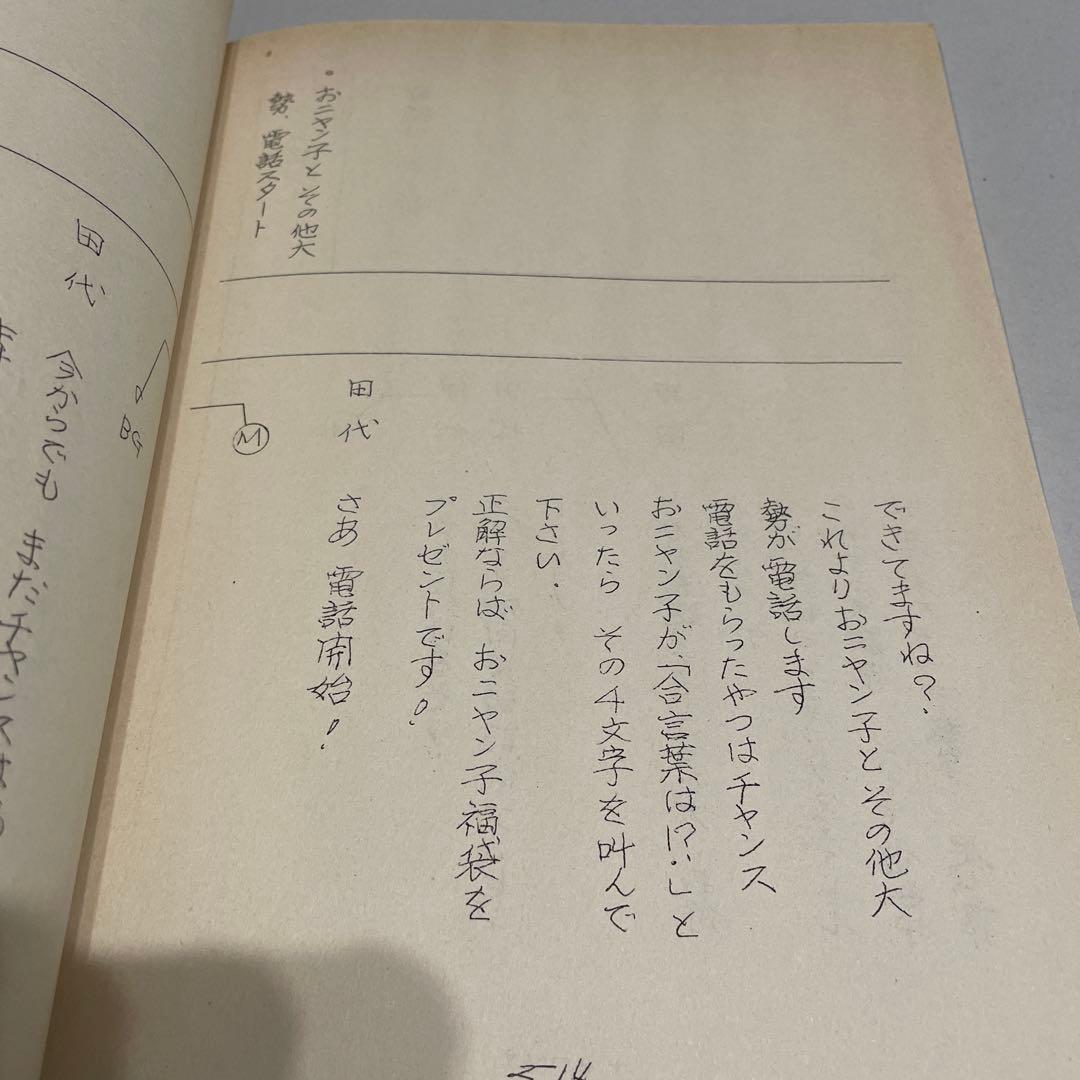 できてますね?
これよりおニャン子と その他大
勢が電話します
電話をもらったやつはチャンス
おニャン子が、「合言葉は!?」と
いったら その4文字を叫んで
下さい.
正解ならば おニャン子福袋を
プレゼントです!
田代
さあ 電話開始!
・おニャン子と その他大
勢、電話スタート
M
BG
田代 今からでも まだチャンスは